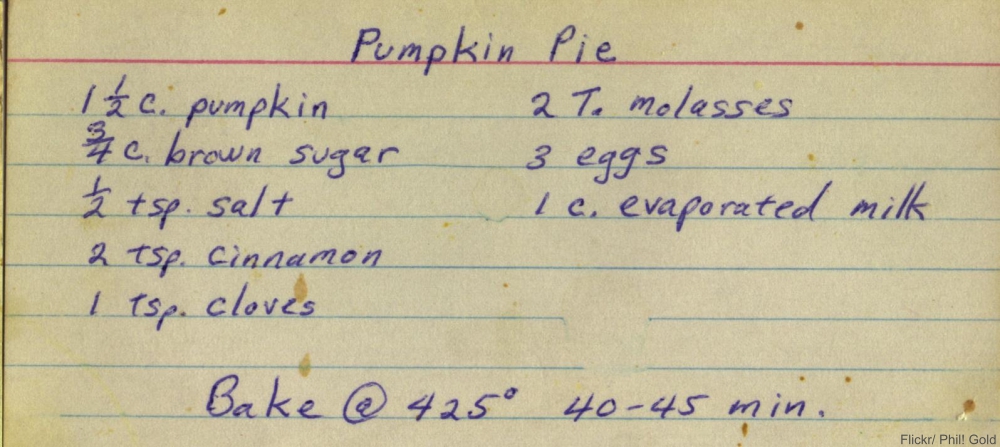 Pumpkin Pie
1 1/2 c. pumpkin
3/4 c. brown sugar
1/2 tsp. salt
2 tsp. cinnamon
1 tsp. cloves
2 T. molasses
3 eggs
1 c. evaporated milk
Bake @ 425° 40-45 min.
Flickr/ Phil! Gold